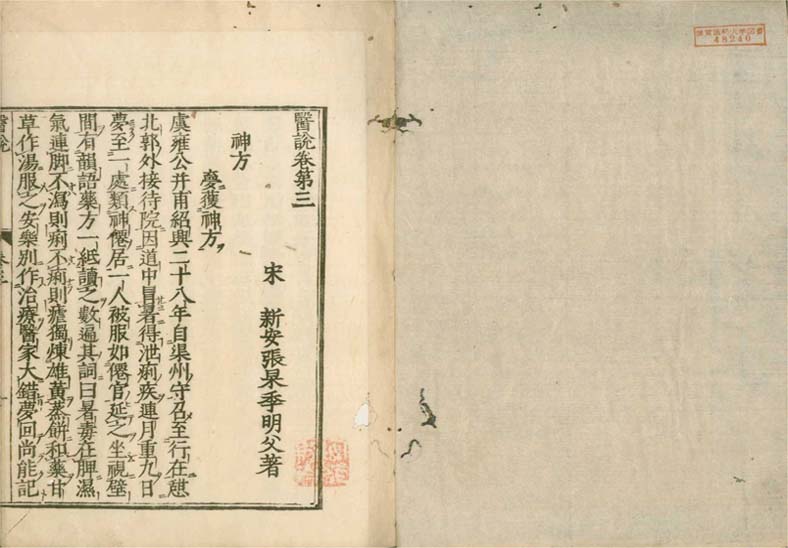 48240
醫說卷第三
宋 新安張杲季明父著
神方
夢獲神方
虞雍公并甫紹興二十八年自渠州守召至行在憇
北郭外接待院因道中冒暑得泄痢疾連月重九日
夢至一處類神僊居一人被服如僊官延之坐視壁
間有韻語藥方一紙讀之數遍其詞曰暑毒在脾濕
氣連脚不瀉則痢不痢則瘧獨煉雄黃蒸餅和藥甘
草作湯服之安樂別作治療醫家大錯夢回尚能記
醫說 卷三